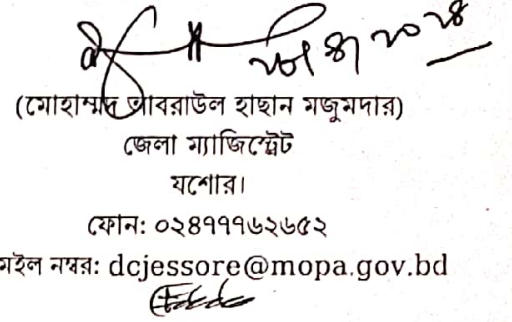 (মোহাম্মদ আবরাউল হাছান মজুমদার)
জেলা ম্যাজিস্ট্রেট
যশোর।
ফোন: ০২৪৭৭৭৬২৬৫২
মেইল নম্বর: dcjessore@mopa.gov.bd